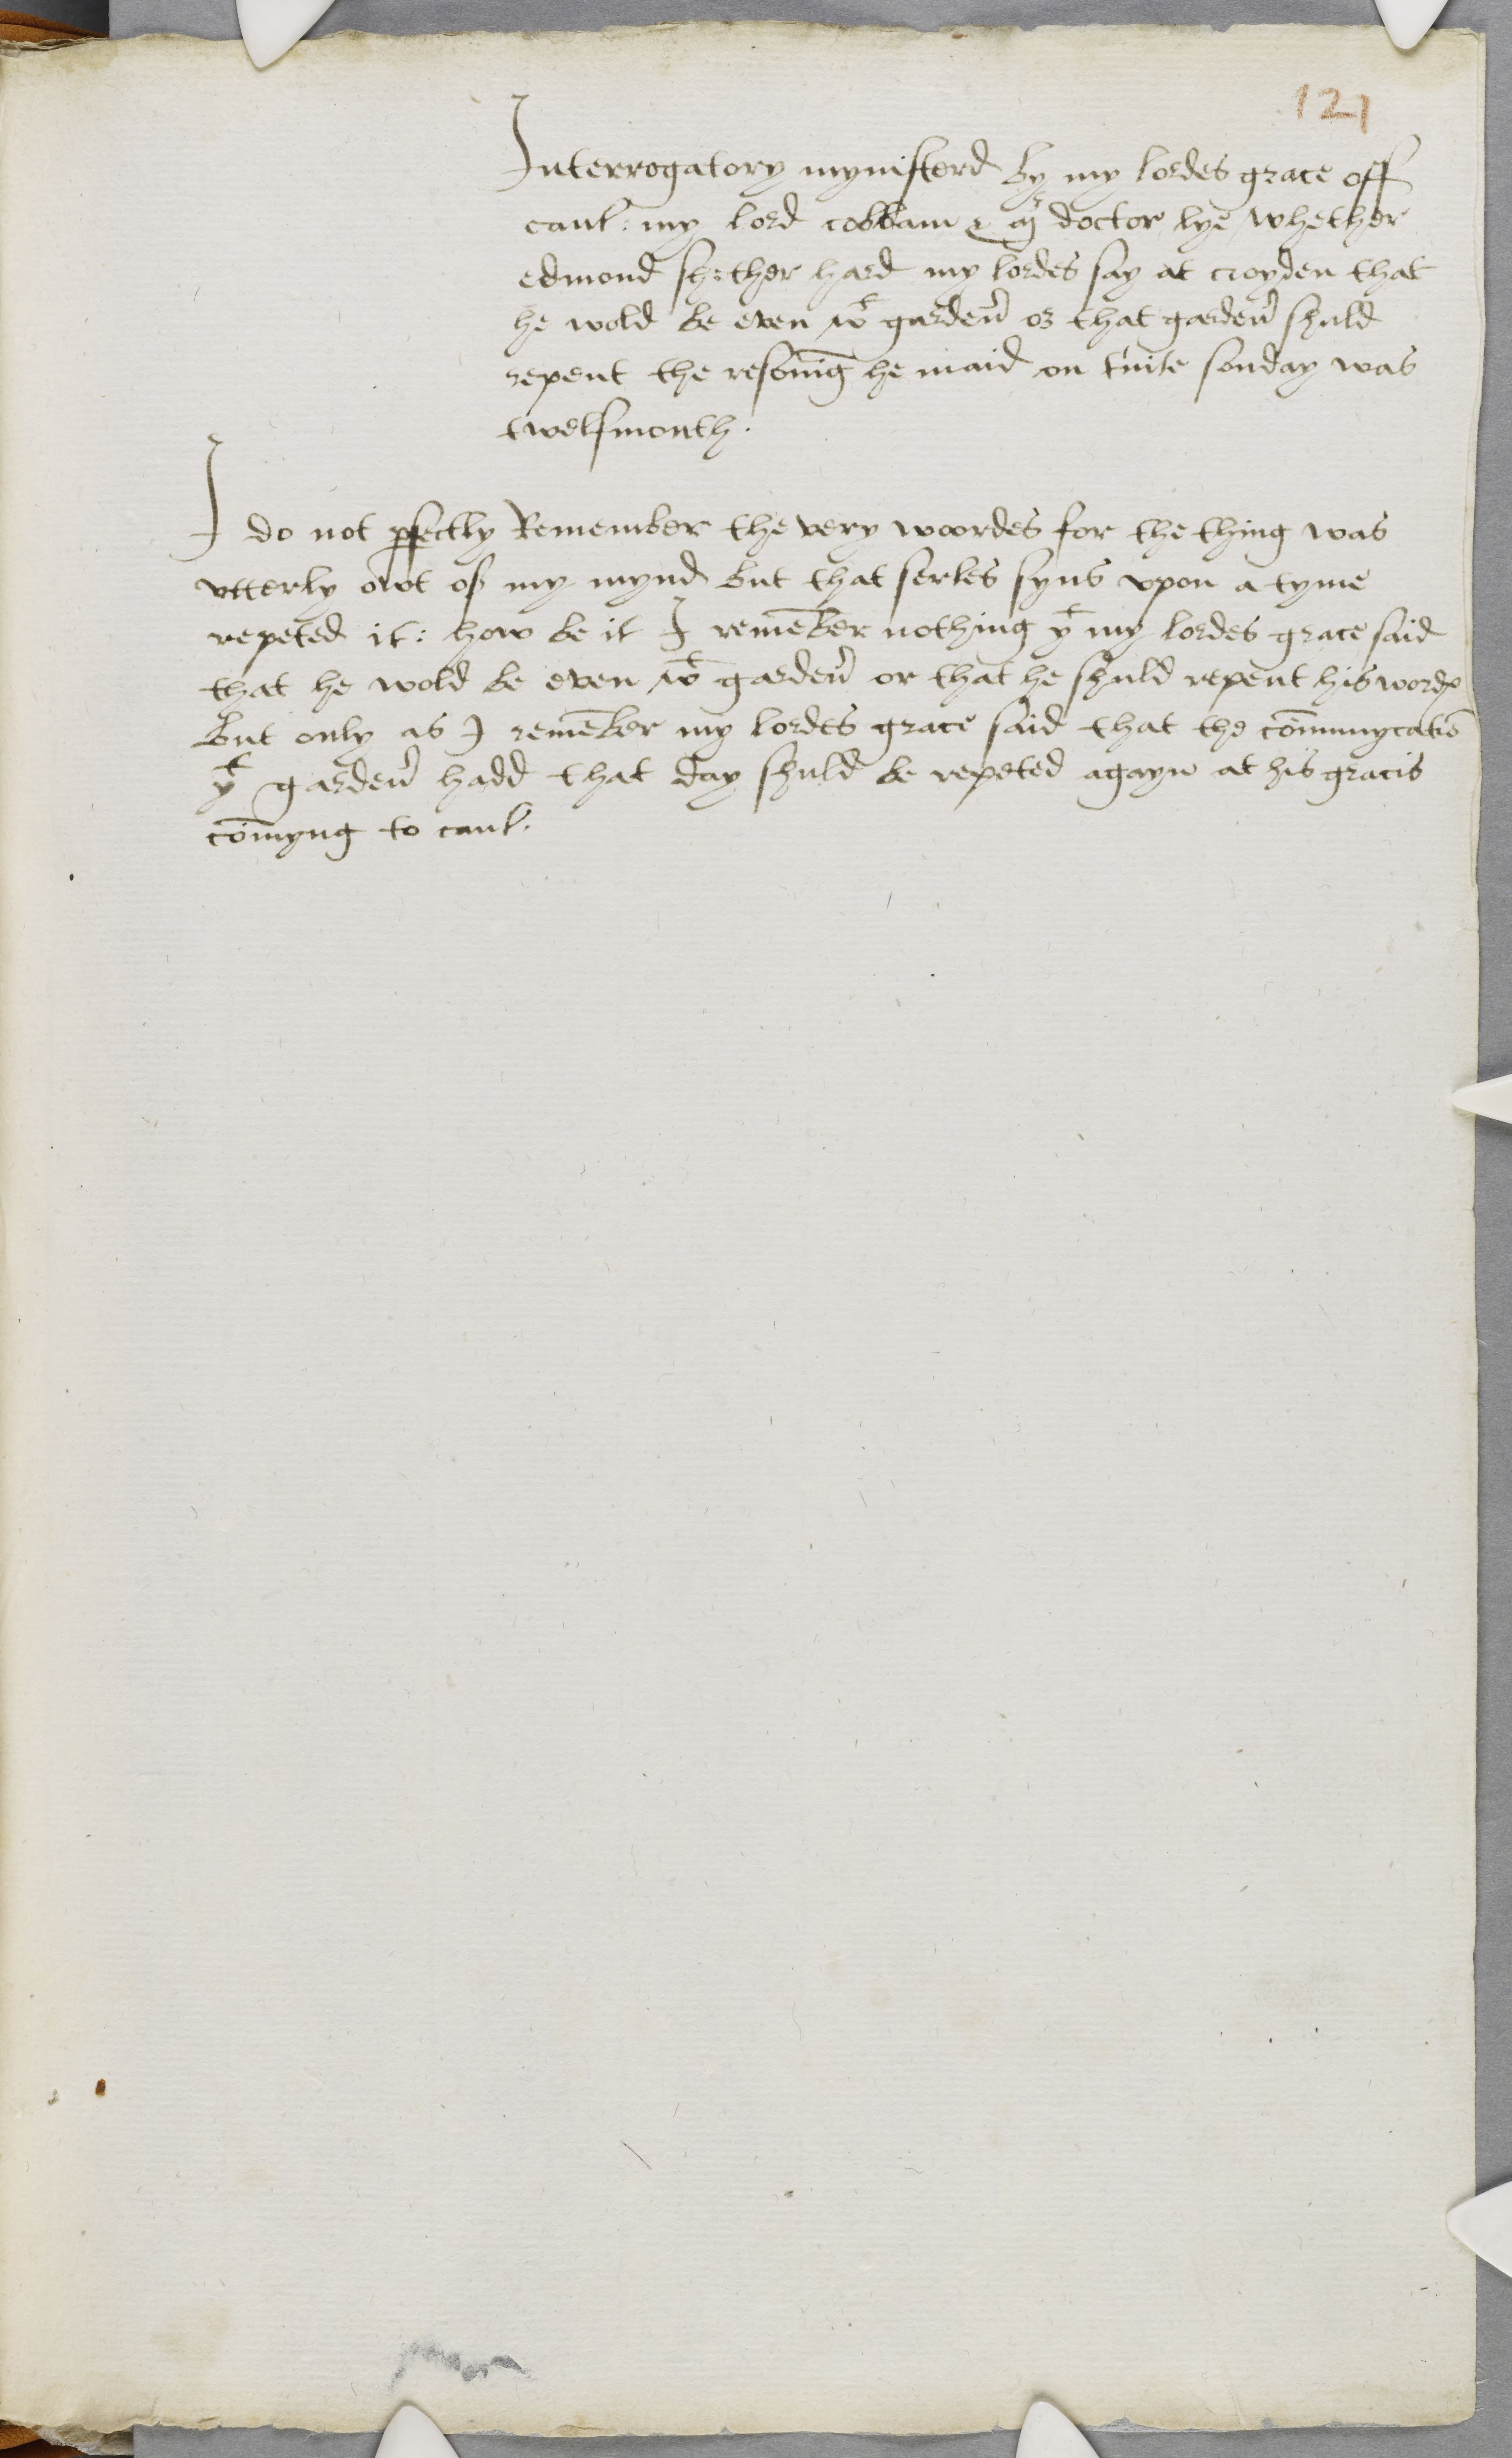 121
Interrogatory mynisterd by my lordes grace off
cant: my lord cobbam & mr doctor lye whether
edmond shether hard my lordes say at croyden that
he wold be even wt garden̉ or that garden̉ shuld
repent the resonīg he maid on t'nite sonday was
twelfmonth.
I do not pfectly Remember the very woordes for the thing was
vtterly owt of my mynd but that serles syns vpon a tyme
repeted it: how be it I remēber nothing yt my lordes grace said
that he wold be even wt garden̉ or that he shuld repent his wordes
but only as I remēber my lordes grace said that the cōmmycatiō
yt garden̉ hadd that day shuld be repeted agayn at his gracis
cōmyng to cant.